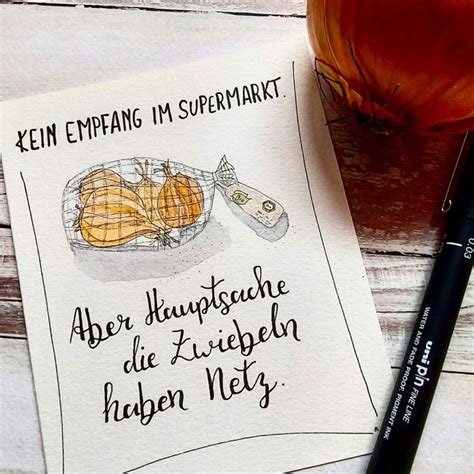 KEIN EMPFANG IM SUPERMARKT.
Aber Hauptsache
die Zwiebeln
haben Netz.
0.03
uni pin FINE LINE
WATER AND FADE PROOF, PIGMENT INK